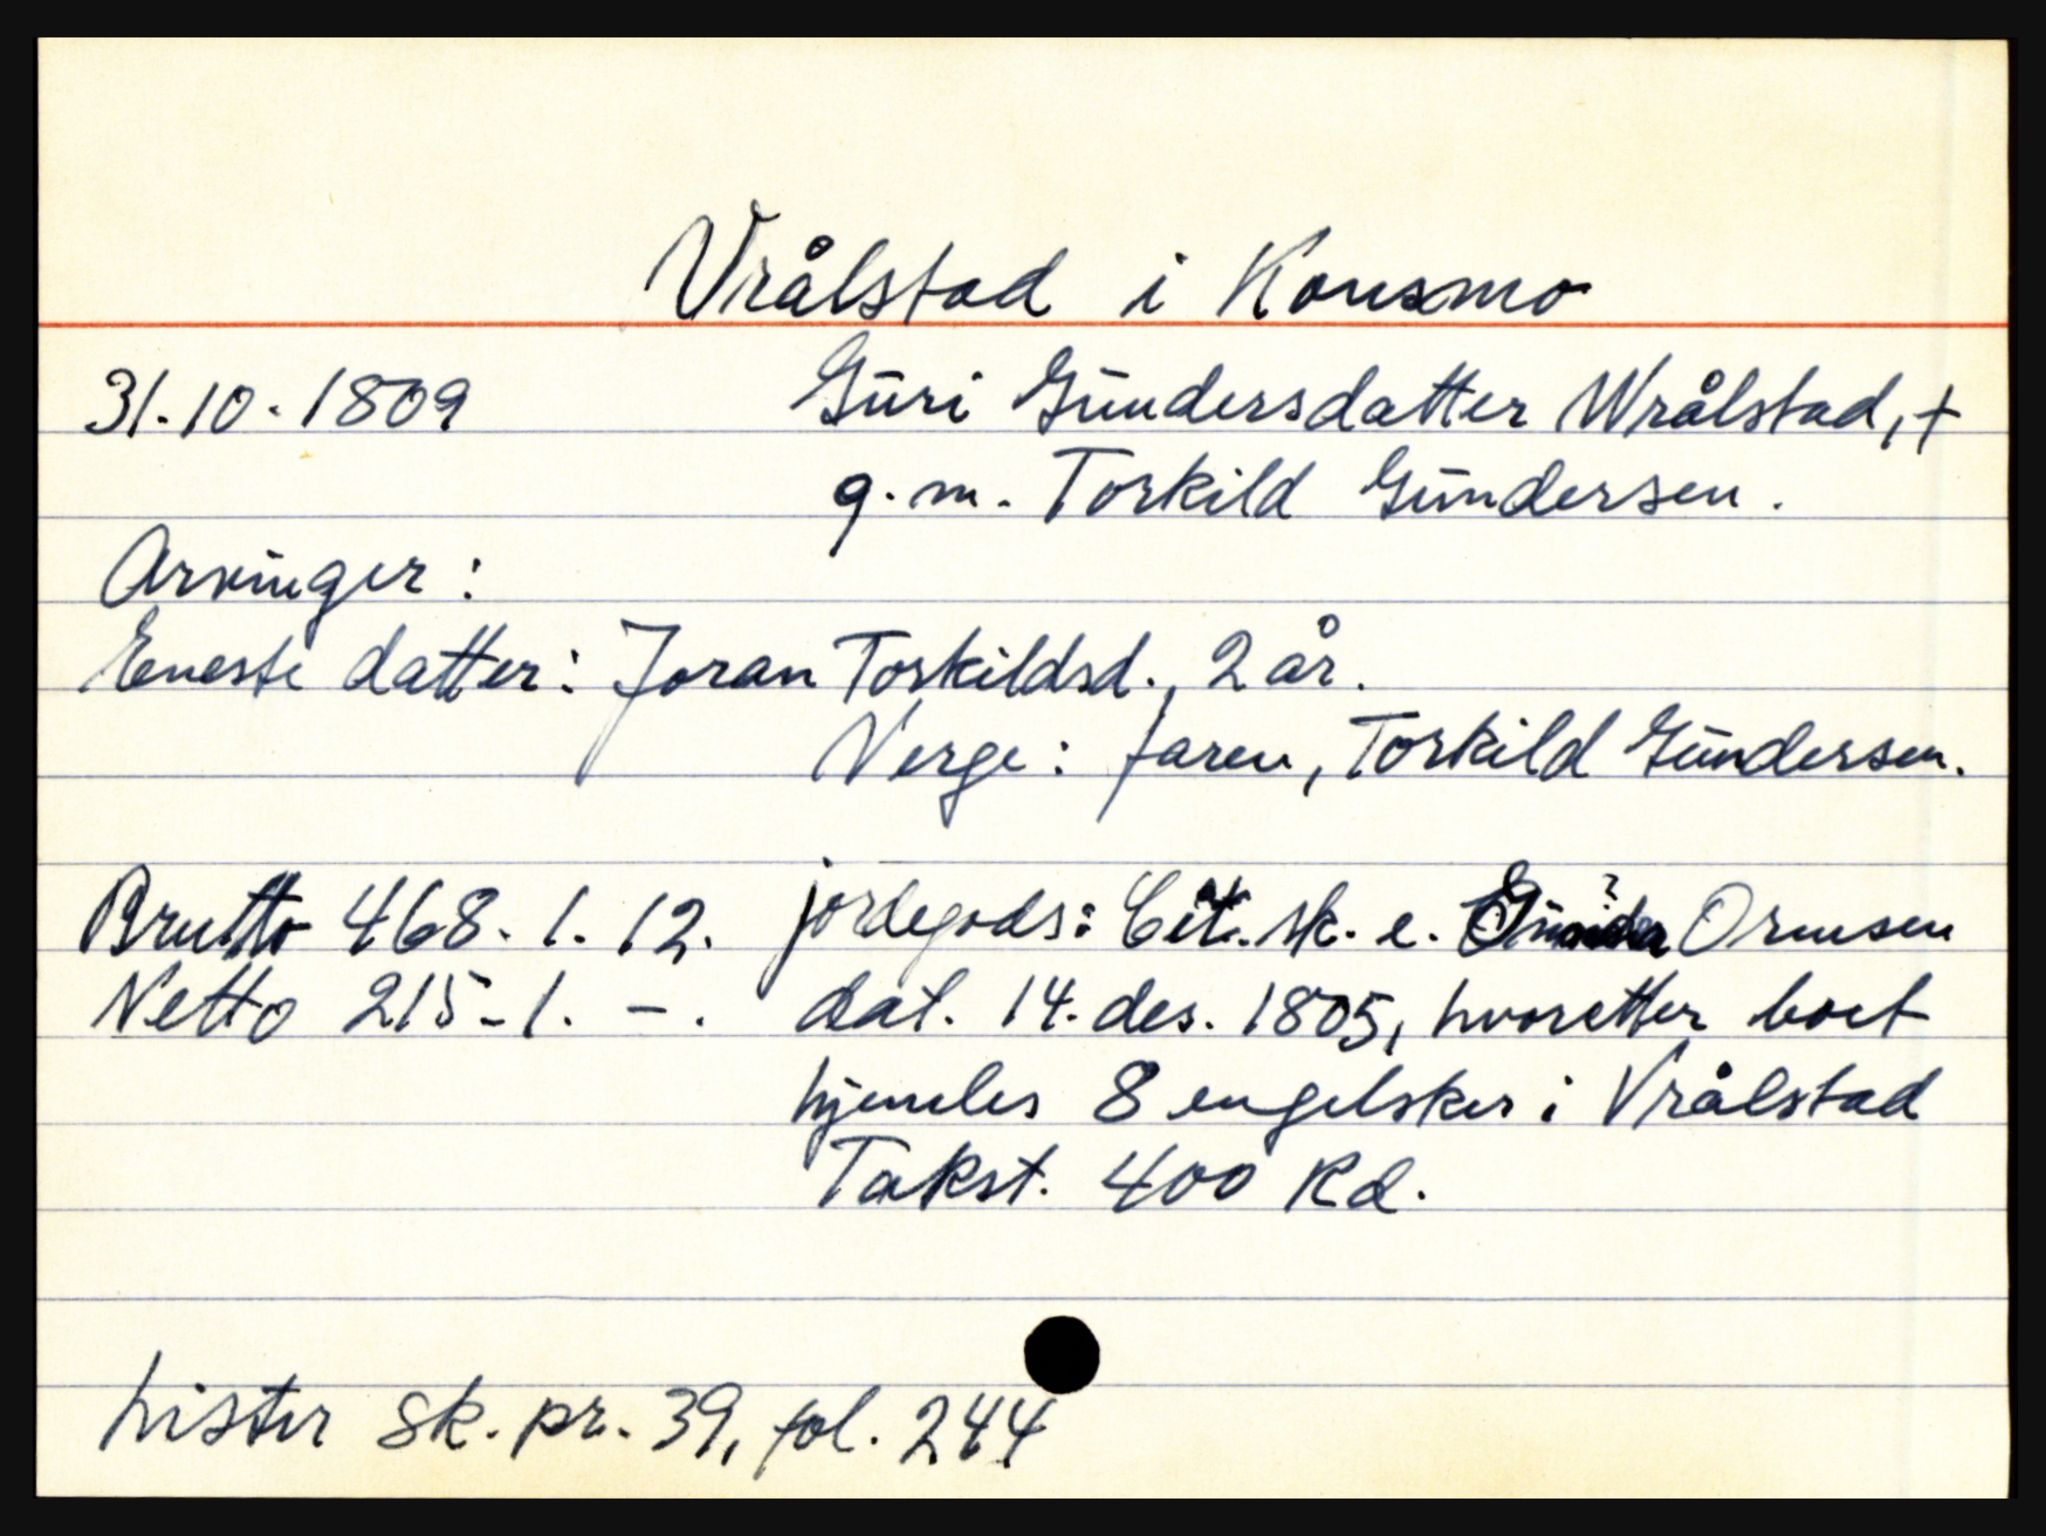 Vrålstad i Konsmo
31.10.1809 Guri Gundersdatter Wrålstad, +
g.m. Torkild Gundersen.
Arvinger:
Eneste datter: Joran Torkildsd., 2 år.
Verge: faren, Torkild Gundersen.
Brutto 468. 1. 12. jordegods: Att. sk. e. ? Ormsen
Netto 215-1. -. dat. 14. des. 1805, hvoretter boet
hjemles 8 engelsker i Vrålstad
Takst. 400 Rd.
Lister sk. pr. 39, fol. 244